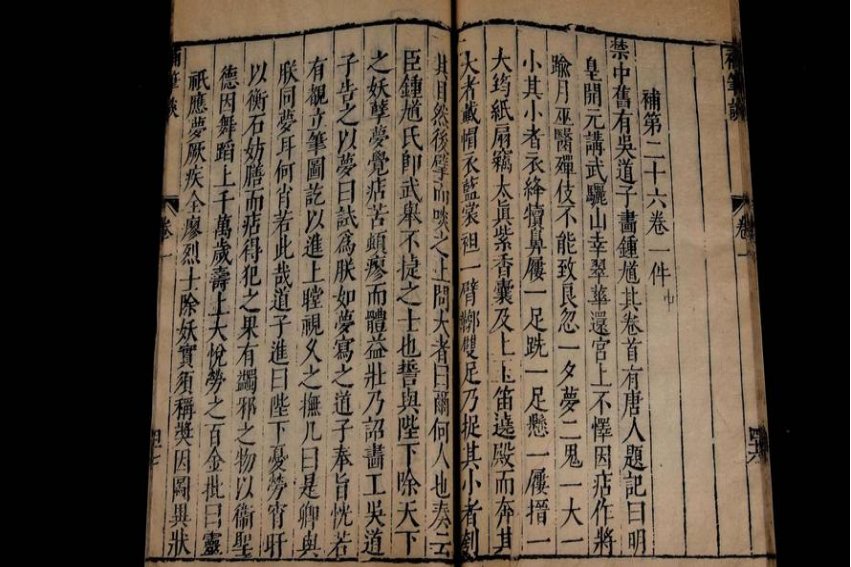 補筆談 卷一
補第二十六卷一件
禁中舊有吳道子畫鍾馗其卷首有唐人題記曰明
皇開元講武驪山幸翠華還宮上不懌因痁作將
踰月巫醫殫伎不能致良忽一夕夢二鬼一大一
小其小者衣絳犢鼻屨一足跣一足懸一屨搢一
大筠紙扇竊太眞紫香囊及上玉笛遶殿而奔其
大者戴帽衣藍裳袒一臂鞹雙足乃捉其小者刳
其目然後擘而啖之上問大者曰爾何人也奏云
臣鍾馗氏卽武舉不捷之士也誓與陛下除天下
之妖孽夢覺痁苦頓瘳而體益壯乃詔畫工吳道
子告之以夢曰試爲朕如夢寫之道子奉旨恍若
有覩立筆圖訖以進上瞠視久之撫几曰是卿與
朕同夢耳何肖若此哉道子進曰陛下憂勞宵旰
以衡石妨膳而痁得犯之果有蠲邪之物以衞聖
德因舞蹈上千萬歲壽上大悅勞之百金批曰靈
祇應夢厥疾全瘳烈士除妖實須稱奬因圖異狀
補筆談 卷一